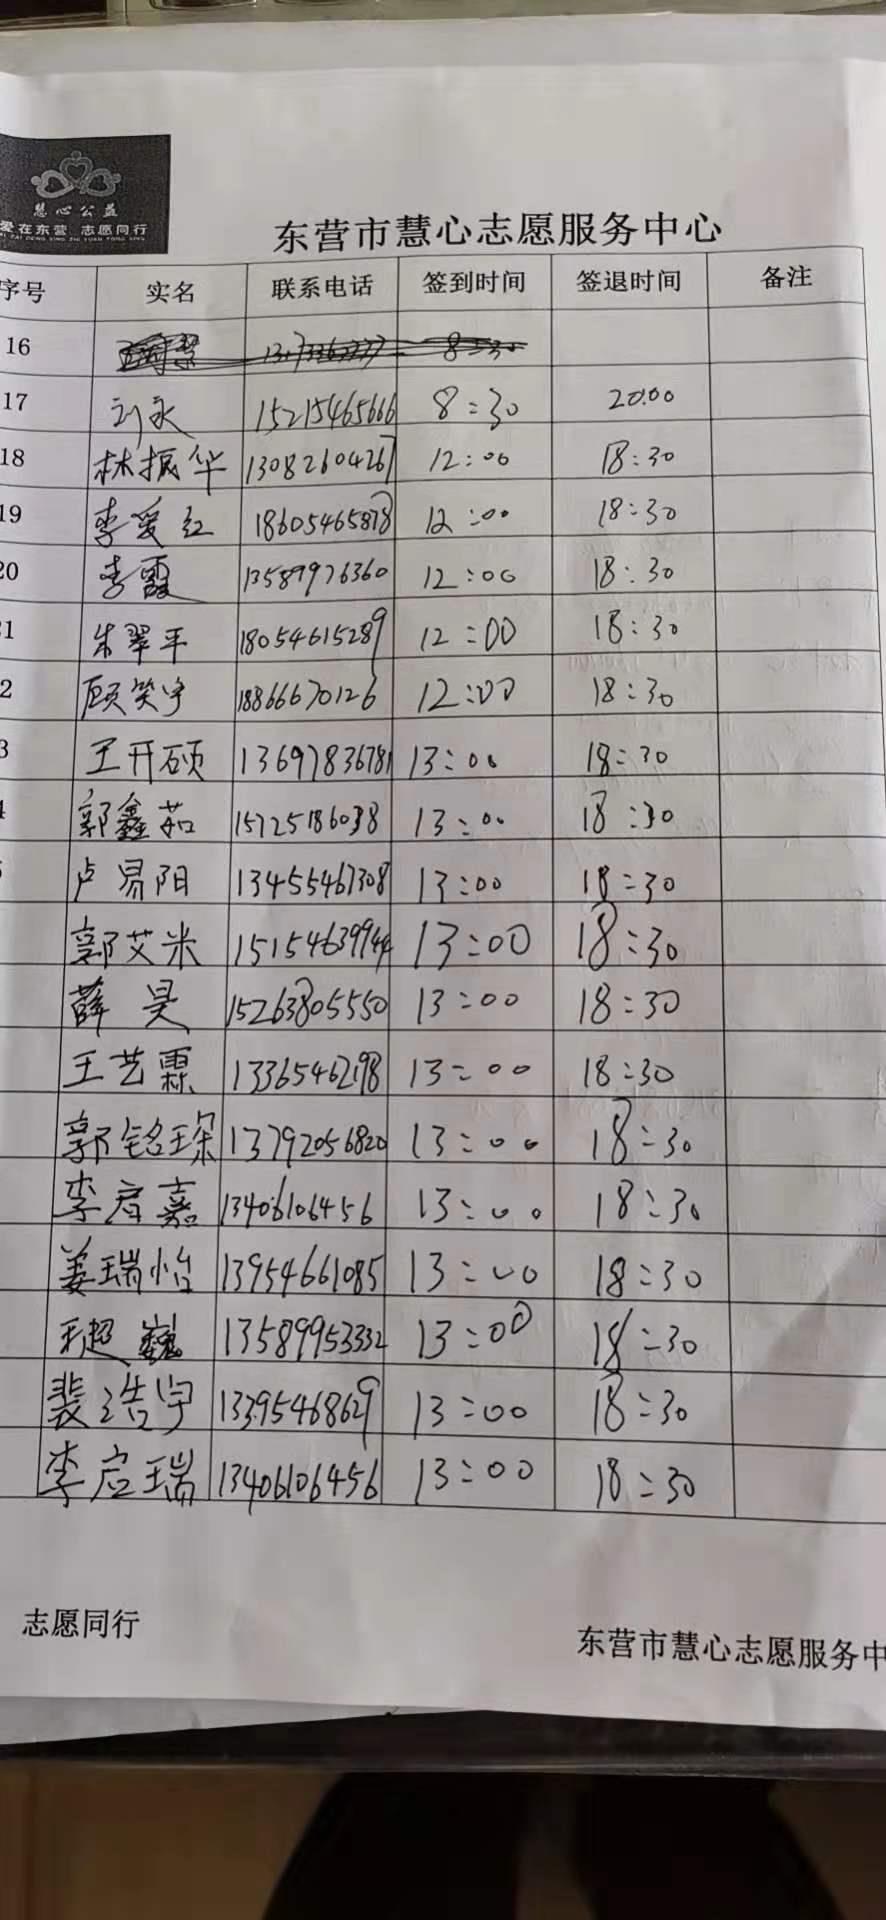 慧心公益
爱在东营 志愿同行
AI ZAI DONG YING ZHI YUAN TONG XING
东营市慧心志愿服务中心
序号 实名 联系电话 签到时间 签退时间 备注
16 8:30
17 刘永 15215465666 8:30 20:00
18 林振华 13082604267 12:00 18:30
19 李爱红 18605465878 12:00 18:30
20 李霞 13589976360 12:00 18:30
1 朱翠平 18054615289 12:00 18:30
2 顾笑宇 18866670126 12:00 18:30
3 王开硕 13697836781 13:00 18:30
4 郭鑫茹 15725186038 13:00 18:30
卢易阳 13455467308 13:00 18:30
郭艾米 15154639944 13:00 18:30
薛昊 15263805550 13:00 18:30
王艺霖 13365462198 13:00 18:30
郭铭琛 13792056820 13:00 18:30
李启嘉 13406106456 13:00 18:30
姜瑞怡 13954661085 13:00 18:30
超巍 13589953332 13:00 18:30
裴浩宇 13395468629 13:00 18:30
李启瑞 13406106456 13:00 18:30
志愿同行
东营市慧心志愿服务中